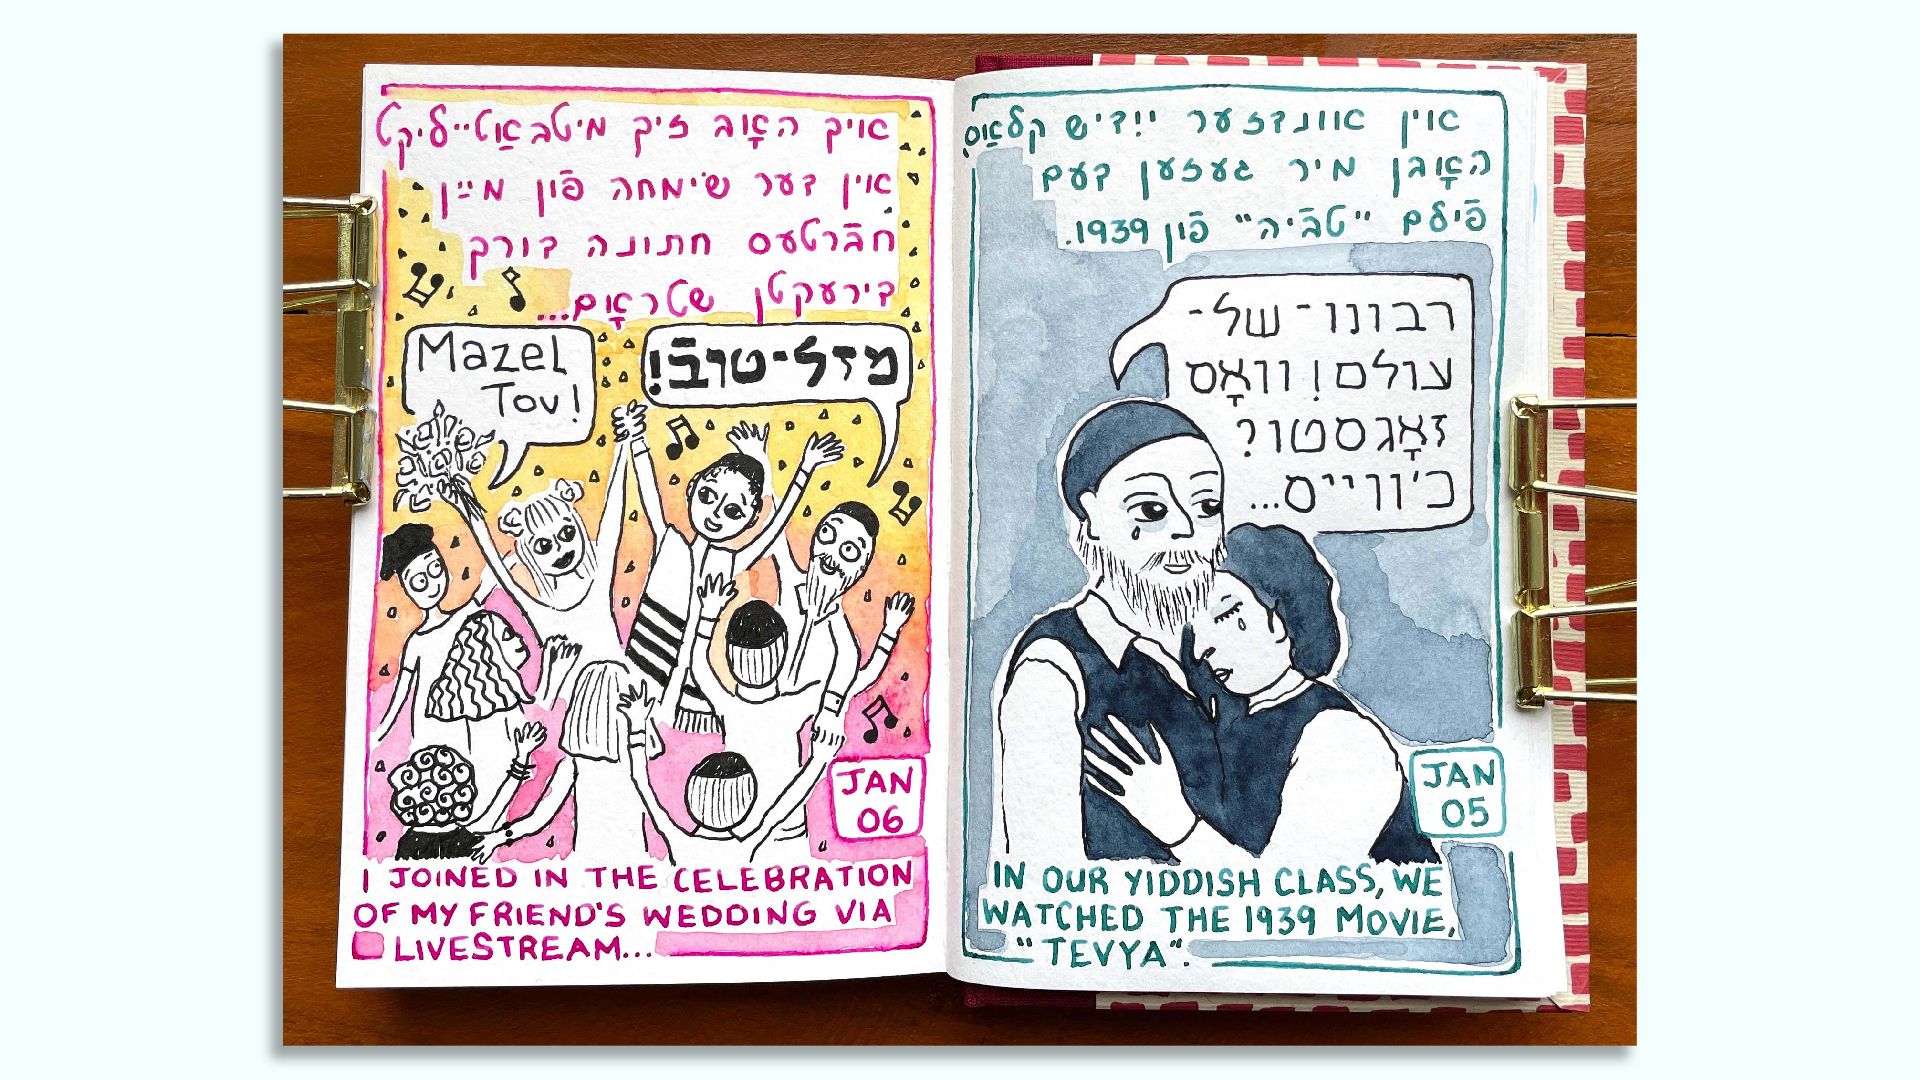 איך האָב זיך מיטבאַטייליקט
אין דער שׂימחה פֿון מײַן
חבֿרטעס חתונה דורך
דירעקטן שטראָם...
Mazel
Tov!
מזל-טובֿ!
JAN
06
I JOINED IN THE CELEBRATION
OF MY FRIEND'S WEDDING VIA
LIVESTREAM...
אין אונדזער ייִדיש קלאַס
האָבן מיר געזען דעם
פֿילם "טבֿיה" פֿון 1939.
רבונו-של-
עולם! וואָס
זאָגסטו?
כ'ווייס...
JAN
05
IN OUR YIDDISH CLASS, WE
WATCHED THE 1939 MOVIE,
"TEVYA".